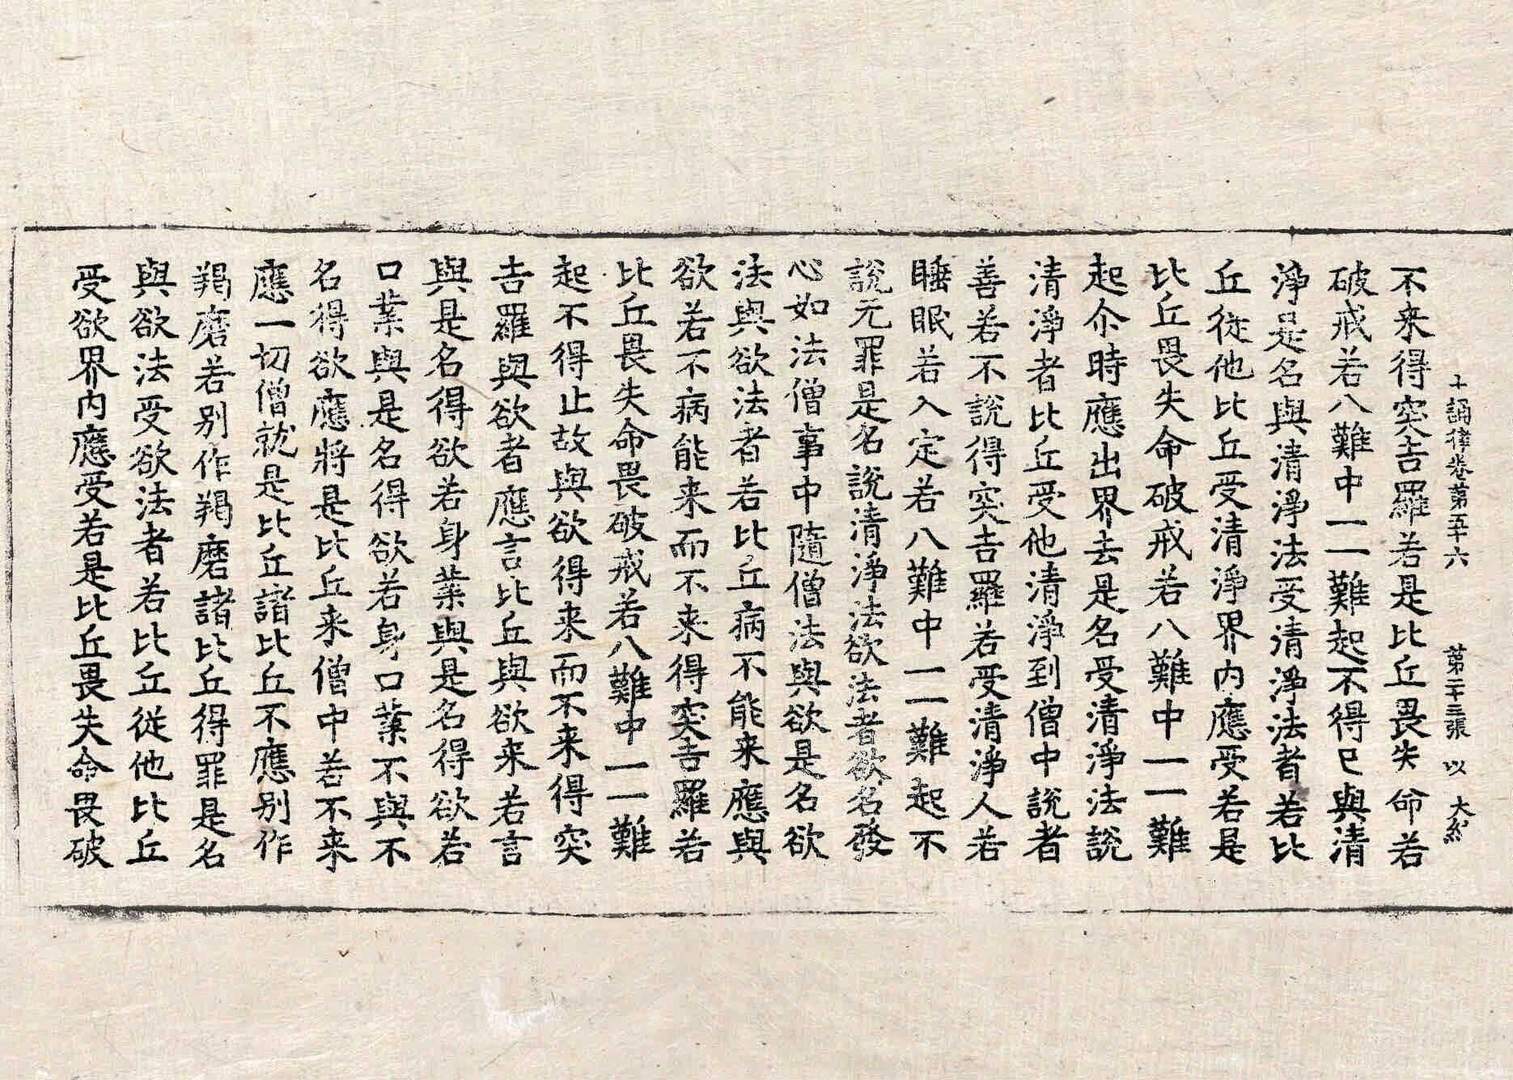 十誦律卷第五十六　第二十三張　以　大紀
不来得突吉羅若是比丘畏失命若
破戒若八難中一一難起不得已與清
淨是名與清淨法受清淨法者若比
丘從他比丘受清淨界内應受若是
比丘畏失命破戒若八難中一一難
起尒時應出界去是名受清淨法說
清淨者比丘受他清淨到僧中說者
善若不說得突吉羅若受清淨人若
睡眠若入定若八難中一一難起不
說无罪是名說清淨法欲法者欲名發
心如法僧事中隨僧法與欲是名欲
法與欲法者若比丘病不能来應與
欲若不病能来而不来得突吉羅若
比丘畏失命畏破戒若八難中一一難
起不得止故與欲得来而不来得突
吉羅與欲者應言比丘與欲来若言
與是名得欲若身業與是名得欲若
口業與是名得欲若身口業不與不
名得欲應將是比丘来僧中若不来
應一切僧就是比丘諸比丘不應别作
羯磨若别作羯磨諸比丘得罪是名
與欲法受欲法者若比丘從他比丘
受欲界内應受若是比丘畏失命畏破